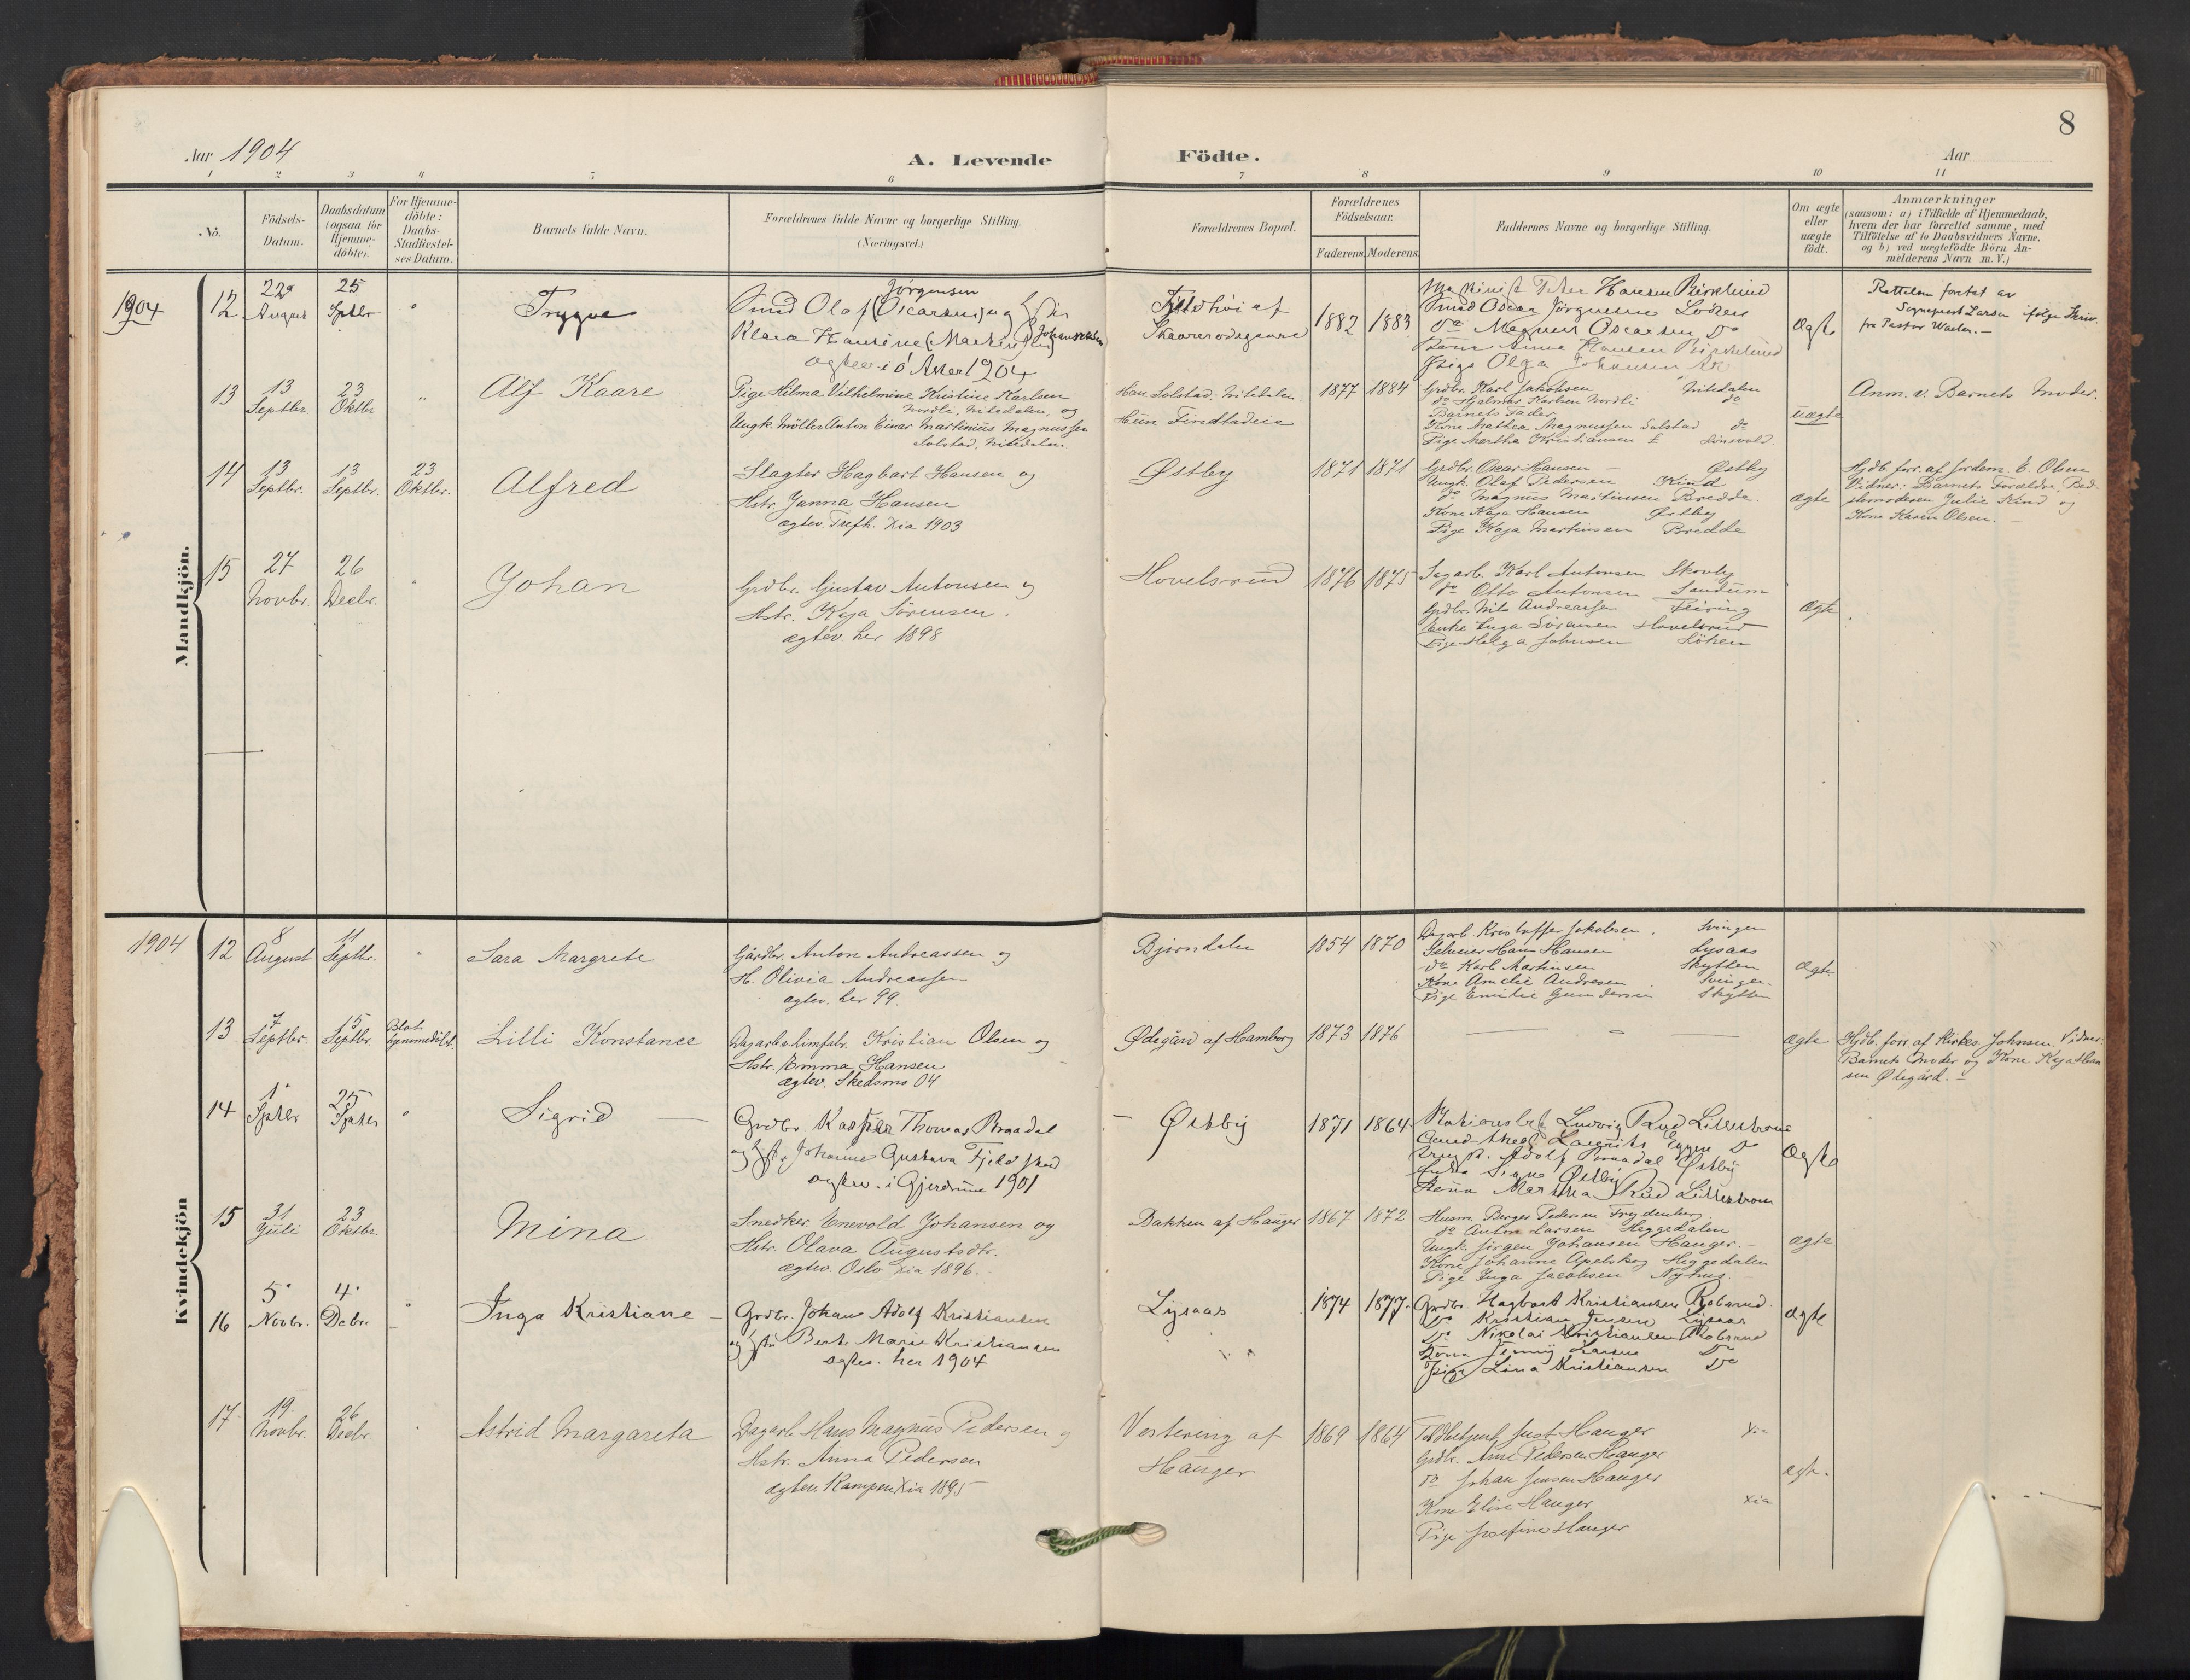 8
Aar 1904
A. Levende
Födte.
Aar
1 2 3 4 5 6 7 8 9 10 11
No.
Födsels-Datum.
Daabsdatum (ogsaa for Hjemme-döbte).
For Hjemme-döbte: Daabs-Stadfæstel-ses Datum.
Barnets fulde Navn.
Forældrenes fulde Navne og borgerlige Stilling.
(Næringsvei.)
Forældrenes Bopæl.
Forældrenes Födselsaar.
Faderens. Moderens.
Faddernes Navne og borgerlige Stilling.
Om ægte eller uægte födt.
Anmærkninger
(saasom: a) i Tilfælde af Hjemmedaab,
hvem der har forrettet samme, med
Tilföielse af to Daabsvidners Navne.
og b) ved uægtefödte Börn An-
melderens Navn m. V.)
Mandkjön.
1904
12
22 August
25 Sptbr
Trygve
Jørgensen
Smed Olaf (Oscarsen) og Hstr
Klara Hansine (Martinsen) Johannesen
ægtev. i Ø Aker 1904
1882 1883
Maskinist Peter Hansen Birkelund
Smed Oscar Jørgensen Lödsen
do Magnus Oscarsen do
Kone Anna Hansen Birkelund
Pige Olga Johansen
Ægte
Rettelsen foretat av
Sogneprest Larsen ifølge Skriv.
fra Pastor
13
13 Septbr.
23 Oktbr
"
Alf Kaare
Pige Hilma Vilhelmine Kristine Karlsen
Nordli, Nitedalen, og
Ungk. Möller Anton Einar Martinius Magnussen
Solstad, Nitedalen.
Han Solstad. Nitedalen
Hun Tindtadeie
1877 1884
Grdbr. Karl Jakobsen Nitedalen
do Hjalmar Karlsen Nordli do
Barnets Fader
Kone Mathea Magnussen Solstad do
Pige Martha Kristiansen
uægte
Anm. v. Barnets Moder.
14
13 Septbr.
13 Septbr.
23 Oktbr.
Alfred
Slagter Hagbart Hansen og
Hstr. Janna Hansen
ægtev. Trefk. Xia 1903
Østby
1871 1871
Grdbr. Oscar Hansen – Østby
Ungk. Olaf Pedersen Kind
do Magnus Martinsen Bredde.
Kone Kaja Hansen Østby
Pige Kaja Martinsen Bredde
ægte
Hjdb. forr. af Jordem. E. Olsen
Vidner: Barnets Forældre, Bed-
stemoderen Julie Kind og
Kone Karen Olsen.
15
27 Novbr.
26 Decbr.
Johan
Grdbr. Gustav Antonsen og
Hstr. Kaja Sörensen.
ægtev. her 1898
Hovelsrud
1876 1875
Sagarb. Karl Antonsen Skovly
do Otto Antonsen Sandum
Grdbr. Nils Andreassen Fleiring
Enke Inga Sörensen Hovelsrud
Pige Helga Johnsen Löken
Ægte
Kvindekjön
1904
12
8 August
11 Septbr.
"
Sara Margrete
Gårdbr. Anton Andreassen og
H. Olivia Andreassen
ægtev. her 99.
Bjørndalen
1854 1870
Dagarb. Kristoffer Jakobsen. Svingen
Selveier Hans Hansen Lysaas
do Karl Martinsen Skytten
Kone Amelie Andresen Svingen.
Pige Emilie Gundersen Skytten
ægte
13
7 Septbr.
15 Septbr.
Blot hjemmedöbt.
Lilli Konstance
Dagarb. Limfabr. Kristian Olsen og
Hstr. Emma Hansen
ægtev. Skedsmo 04
Ødegård af Hamborg
1873 1876
ægte
Hjdb. forr. af Kirkes. Johnsen. Vidner:
Barnets Moder og Kone Kaja Han-
sen Ødegård. –
14
1 Sptbr
25 Sptbr
Sigrid
Grdbr. Kasper Thomas Braadal
og Hstr. Johanne Gustava Fjeldstad
ægtev. i Gjerdrum 1901
Østby
1871 1864
Stationsbetj. Ludvig Rud Lillestrøm
Laurits Eggen do
Ungk. Adolf Braadal Østby
Enke Signe Østby
Kone Martha Rud Lillestrøm
Ægte
15
31 Juli
23 Oktbr.
Mina
Snedker Enevold Johansen og
Hstr. Olava Augustsdtr.
ægtev. Oslo Xia 1896.
Bakken af Hauger
1867 1872
Husm. Berger Pedersen Frydenberg
do Anton Larsen Heggedalen
Ungk. Jörgen Johansen Hauger. –
Kone Johanne Apelskog Heggedalen
Pige Inga Jacobsen Nyhus –
ægte
16
5 Novbr.
4. Dcbr.
Inga Kristiane
Grdbr. Johan Adolf Kristiansen
og Hstr Berte Marie Kristiansen
ægtev. her 1904
Lysaas
1874 1877.
Grdbr. Hagbart Kristiansen Robsrud.
do Kristian Jensen Lysaas
do Nikolai Kristiansen Robsrud
Kone Jenny Larsen do
Pige Lina Kristiansen do
ægte
17
19 Novbr.
26 Decbr.
Astrid Margareta
Dagarb. Hans Magnus Pedersen og
Hstr. Anna Pedersen
ægtev. Kampen Xia 1895
Vestereng af
Hauger
1869 1864
Toldbetjent Just Hauger Xia
Grdbr. Anne Pedersen Hauger
do Johan Jensen Hauger
Kone Elise Hauger Xia
Pige Josefine Hauger
ægte.